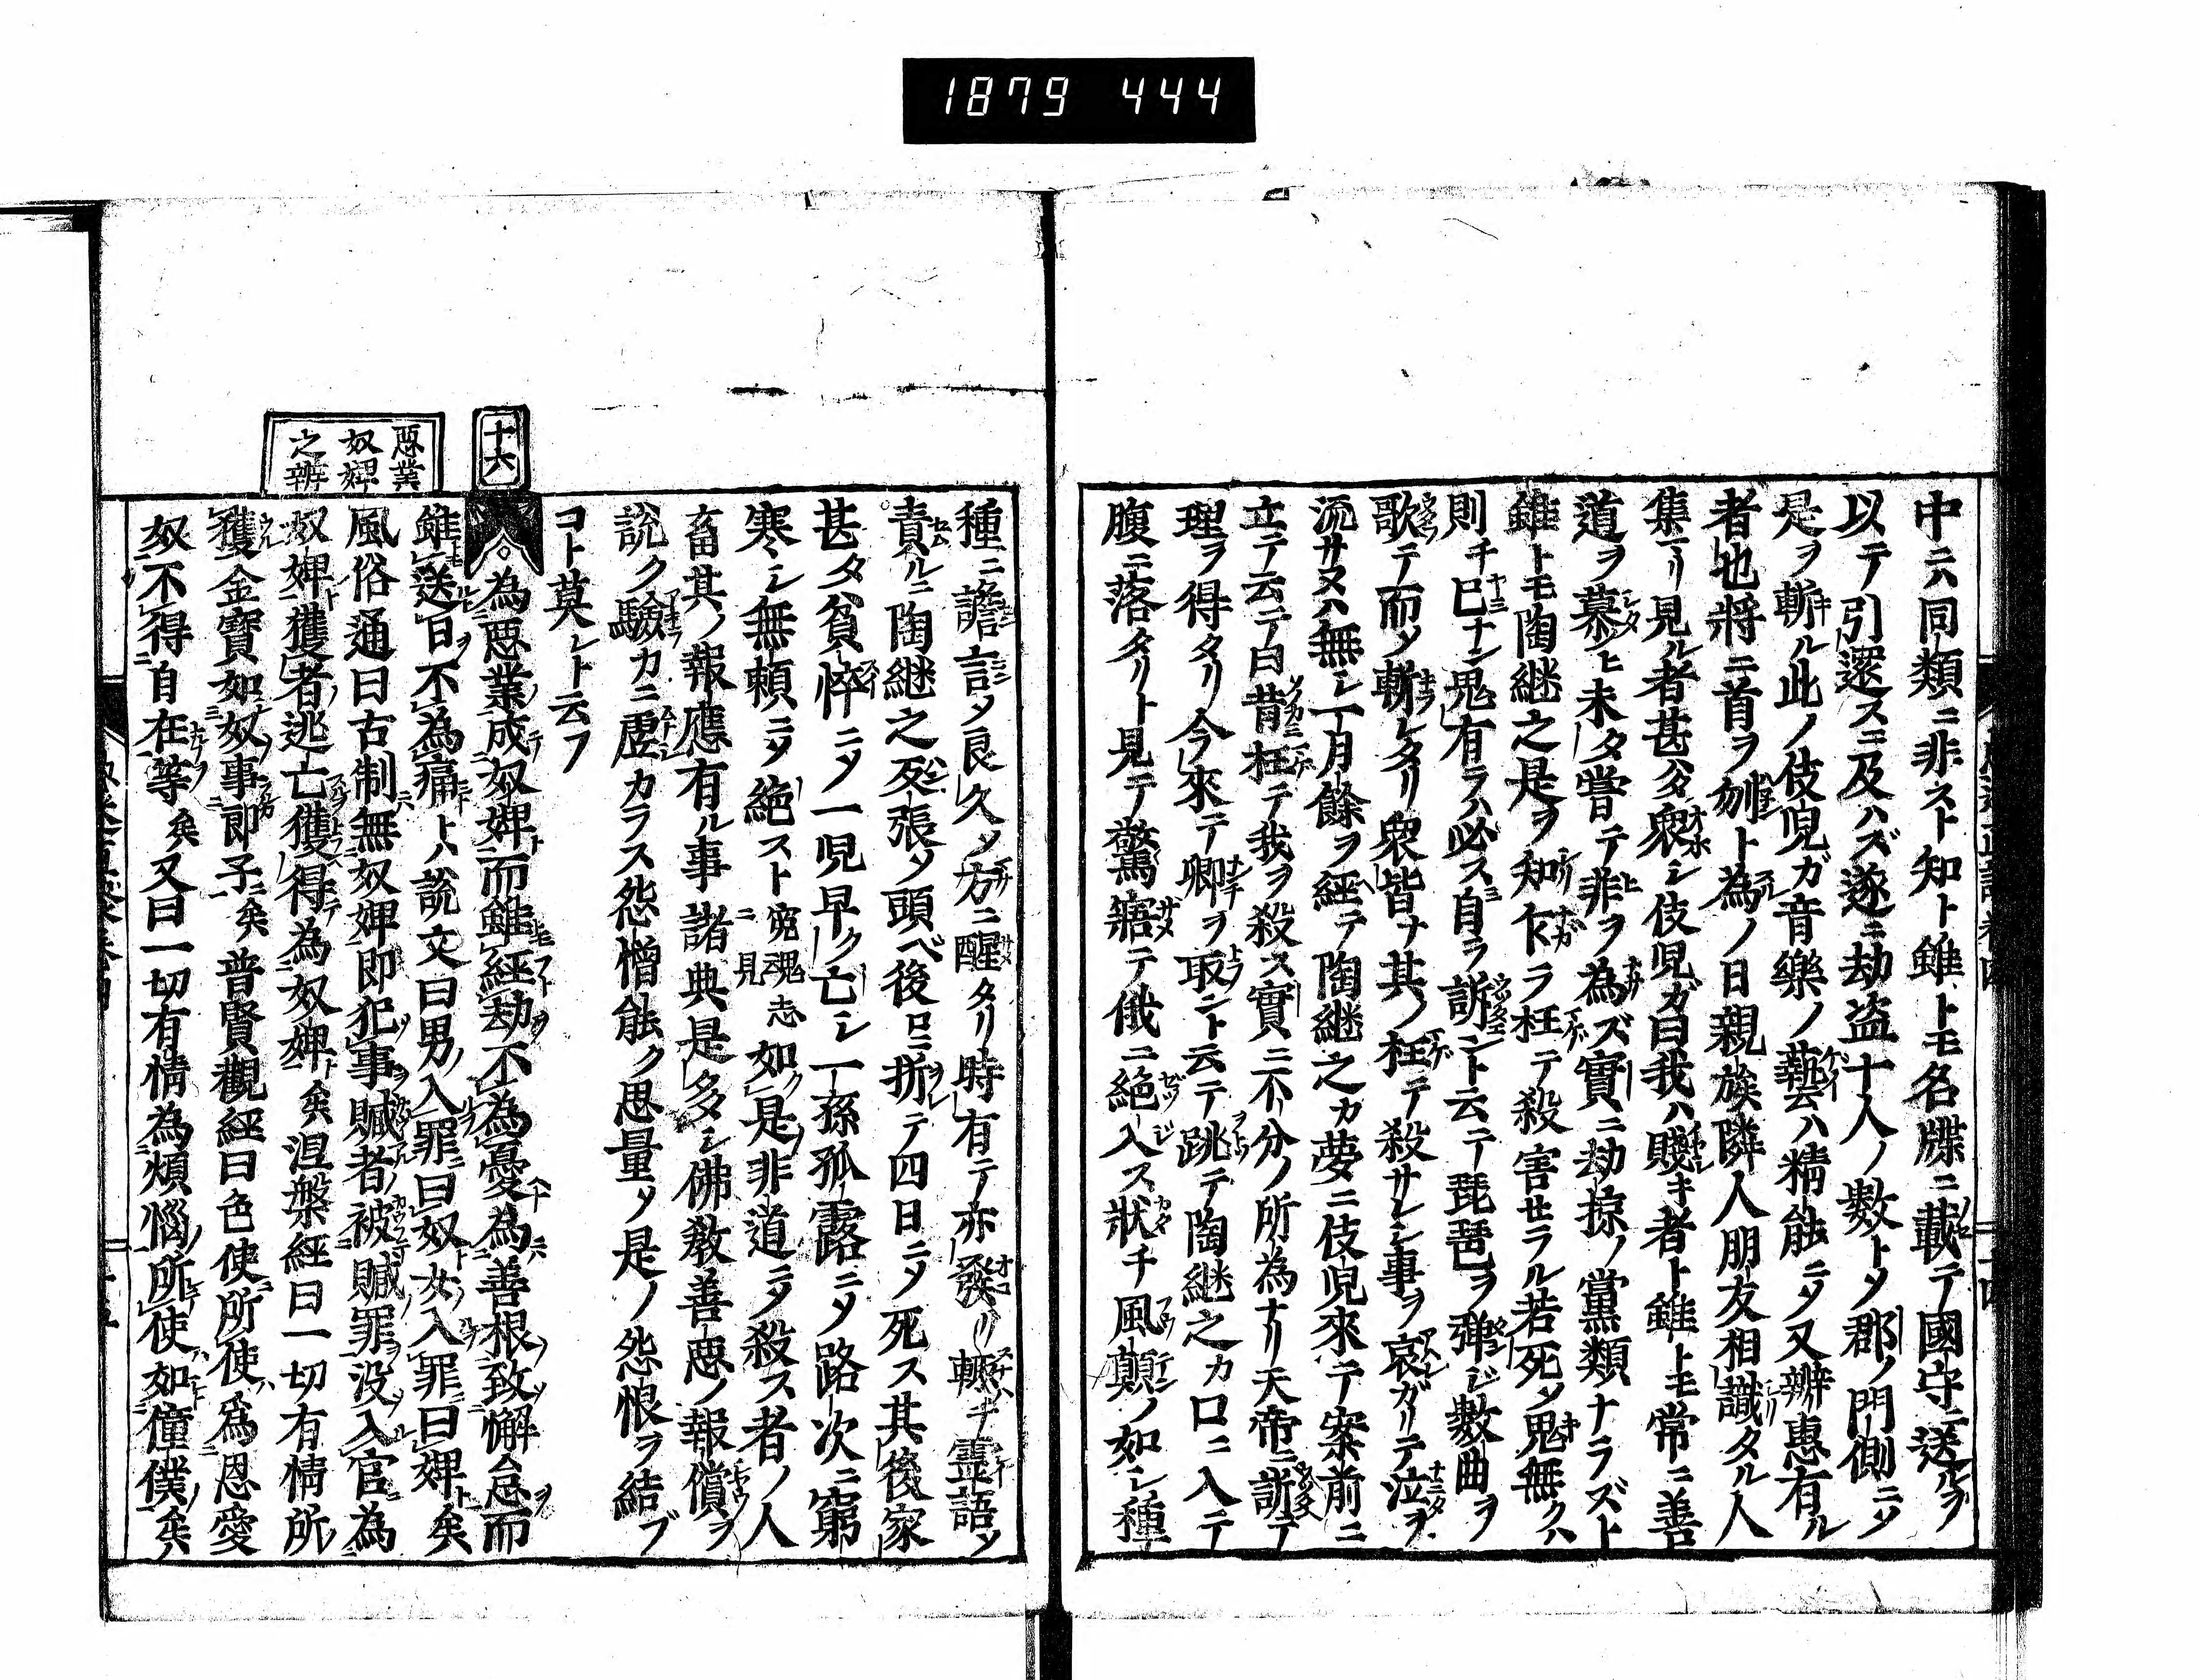 1879 444
中ニハ同類ニ非スト知ト雖トモ名牒ニ載テ國守ニ送ルヲ
以テ引還スニ及ハズ遂ニ劫盗十人ノ數トメ郡ノ門側ニメ
是ヲ斬ル此ノ伎児ガ音樂ノ藝ハ精能ニメ又辨惠有ル
者也將ニ首ヲ刎ト為ノ日親族隣人朋友相識タル人
集リ見ル者甚ハタ衆シ伎児カ曰我ハ賤キ者ト雖トモ常ニ善
道ヲ慕ヒ未タ嘗テ非ヲ為ズ實ニ劫掠ノ黨類ナラズト
雖トモ陶継之是ヲ知ナガラ枉テ殺害セラル若死メ鬼無クハ
則チ已ナン鬼有ラハ必ス自ラ訴ント云テ琵琶ヲ弾ジ數曲ヲ
歌テ而メ斬レタリ衆皆ナ其ノ枉テ殺サレシ事ヲ哀ガリテ泣ヲ
流サヌハ無シ一月餘ヲ經テ陶継之カ夢ニ伎児來テ案前ニ
立テ云テ曰昔枉テ我ヲ殺ス實ニ不分ノ所為ナリ天帝ニ訴テ
理ヲ得タリ今來テ卿ヲ取ント云テ跳テ陶継之カ口ニ入テ
腹ニ落タリト見テ驚寤テ俄ニ絶入ス狀チ風顛ノ如シ種
種ニ譫言メ良久メ方ニ醒タリ時有テ亦發リ輙チ霊語メ
責ルニ陶継之死張メ頭ベ後ロニ折テ四日ニメ死ス其後家
甚タ貧悴ニメ一児早ク亡シ一孫孤露ニメ路次ニ窮
寒シ無頼ニメ絶スト寃魂志ニ見如是非道ニメ殺ス者ノ人
畜其ノ報應有ル事諸典是多シ佛教善悪ノ報償ヲ
説ク驗カニ虚カラス怨憎能ク思量メ是ノ怨恨ヲ結ブ
コト莫レト云フ
十六
悪業
奴婢
之辨
為悪業成奴婢而雖經劫不為憂為善根致懈怠而
雖送日不為痛トハ説文曰男入罪曰奴女入罪曰婢矣
風俗通曰古制無奴婢即犯事贓者被贓罪没入官為
奴婢獲者逃亡獲得為奴婢矣涅槃經曰一切有情所
獲金寶如奴事即子矣普賢觀經曰色使所使為恩愛
奴不得自在等矣又曰一切有情為煩惱所使如僮僕矣